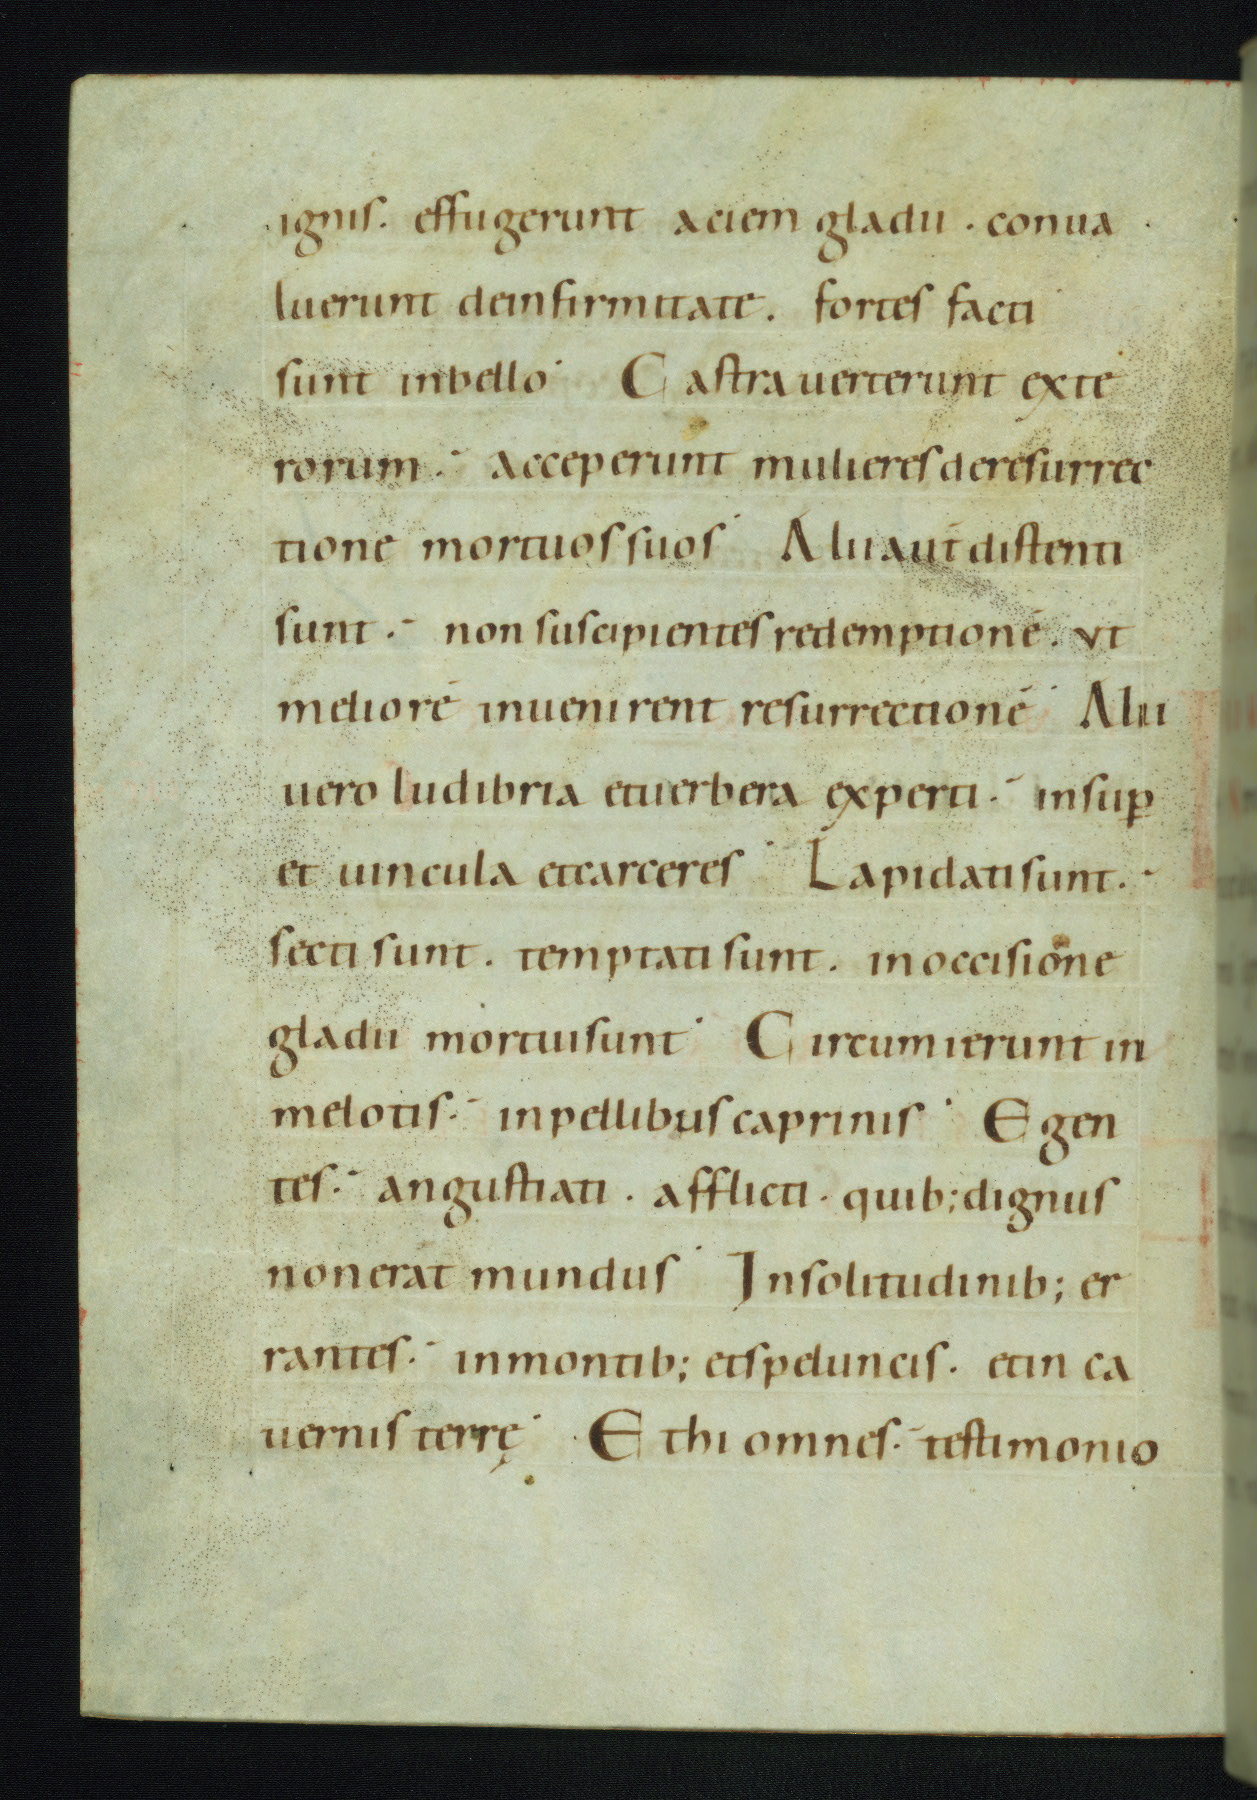 ignis. effugerunt aciem gladii. conua
luerunt deinfirmitate. fortes facti
sunt inbello. Castra uerterunt exte
rorum. acceperunt mulieres deresurrec
tione mortuos suos. Alii aut̄ distenti
sunt. non suscipientes redemptionē. ut
meliorē inuenirent resurrectionē. Alii
uero ludibria etuerbera experti. insuꝑ
et uincula etcarceres. Lapidati sunt.
secti sunt. temptati sunt. inoccisione
gladii mortuisunt. Circumierunt in
melotis. inpellibus caprinis. Egen
tes. angustiati. afflicti. quib; dignus
nonerat mundus. Insolitudinib; er
rantes. inmontib; etspeluncis. etin ca
uernis terrę. Ethi omnes. testimonio